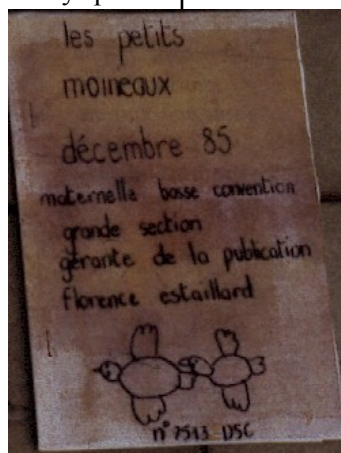 les petits
moineaux
décembre 85
maternelle basse convention
grande section
gérante de la publication
florence estaillard
n° 7513 DSC